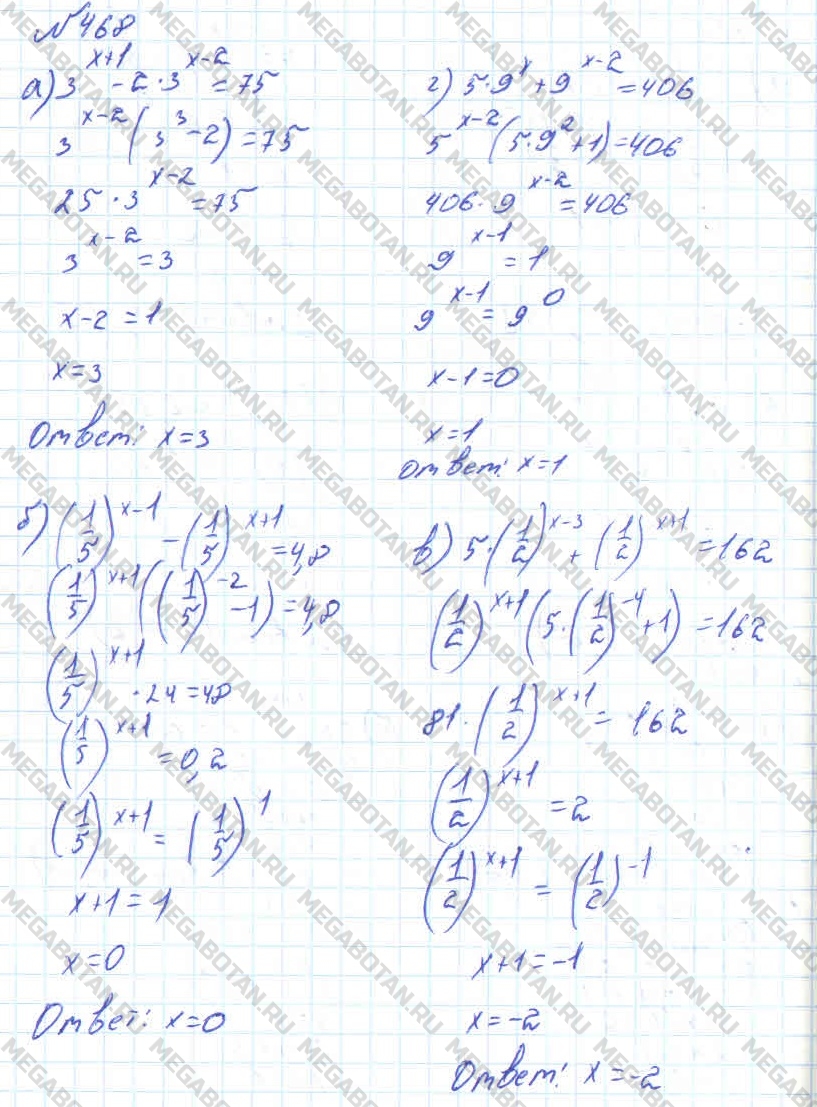 №468
а) 3^(x+1) - 2·3^(x-2) = 75
3^(x-2) (3^3 - 2) = 75
25·3^(x-2) = 75
3^(x-2) = 3
x-2 = 1
x=3
Ответ: x=3
г) 5·9^x + 9^(x-2) = 406
5^(x-2) (5·9^2 + 1) = 406
406·9^(x-2) = 406
9^(x-1) = 1
9^(x-1) = 9^0
x-1=0
x=1
ответ: x=1
б) (1/5)^(x-1) - (1/5)^(x+1) = 4,8
(1/5)^(x+1) ((1/5)^(-2) - 1) = 4,8
(1/5)^(x+1) · 24 = 48
(1/5)^(x+1) = 0,2
(1/5)^(x+1) = (1/5)^1
x+1 = 1
x=0
Ответ: x=0
в) 5·(1/2)^(x-3) + (1/2)^(x+1) = 162
(1/2)^(x+1) (5·(1/2)^(-4) + 1) = 162
81·(1/2)^(x+1) = 162
(1/2)^(x+1) = 2
(1/2)^(x+1) = (1/2)^(-1)
x+1 = -1
x = -2
Ответ: x = -2
MEGABOTAN.RU